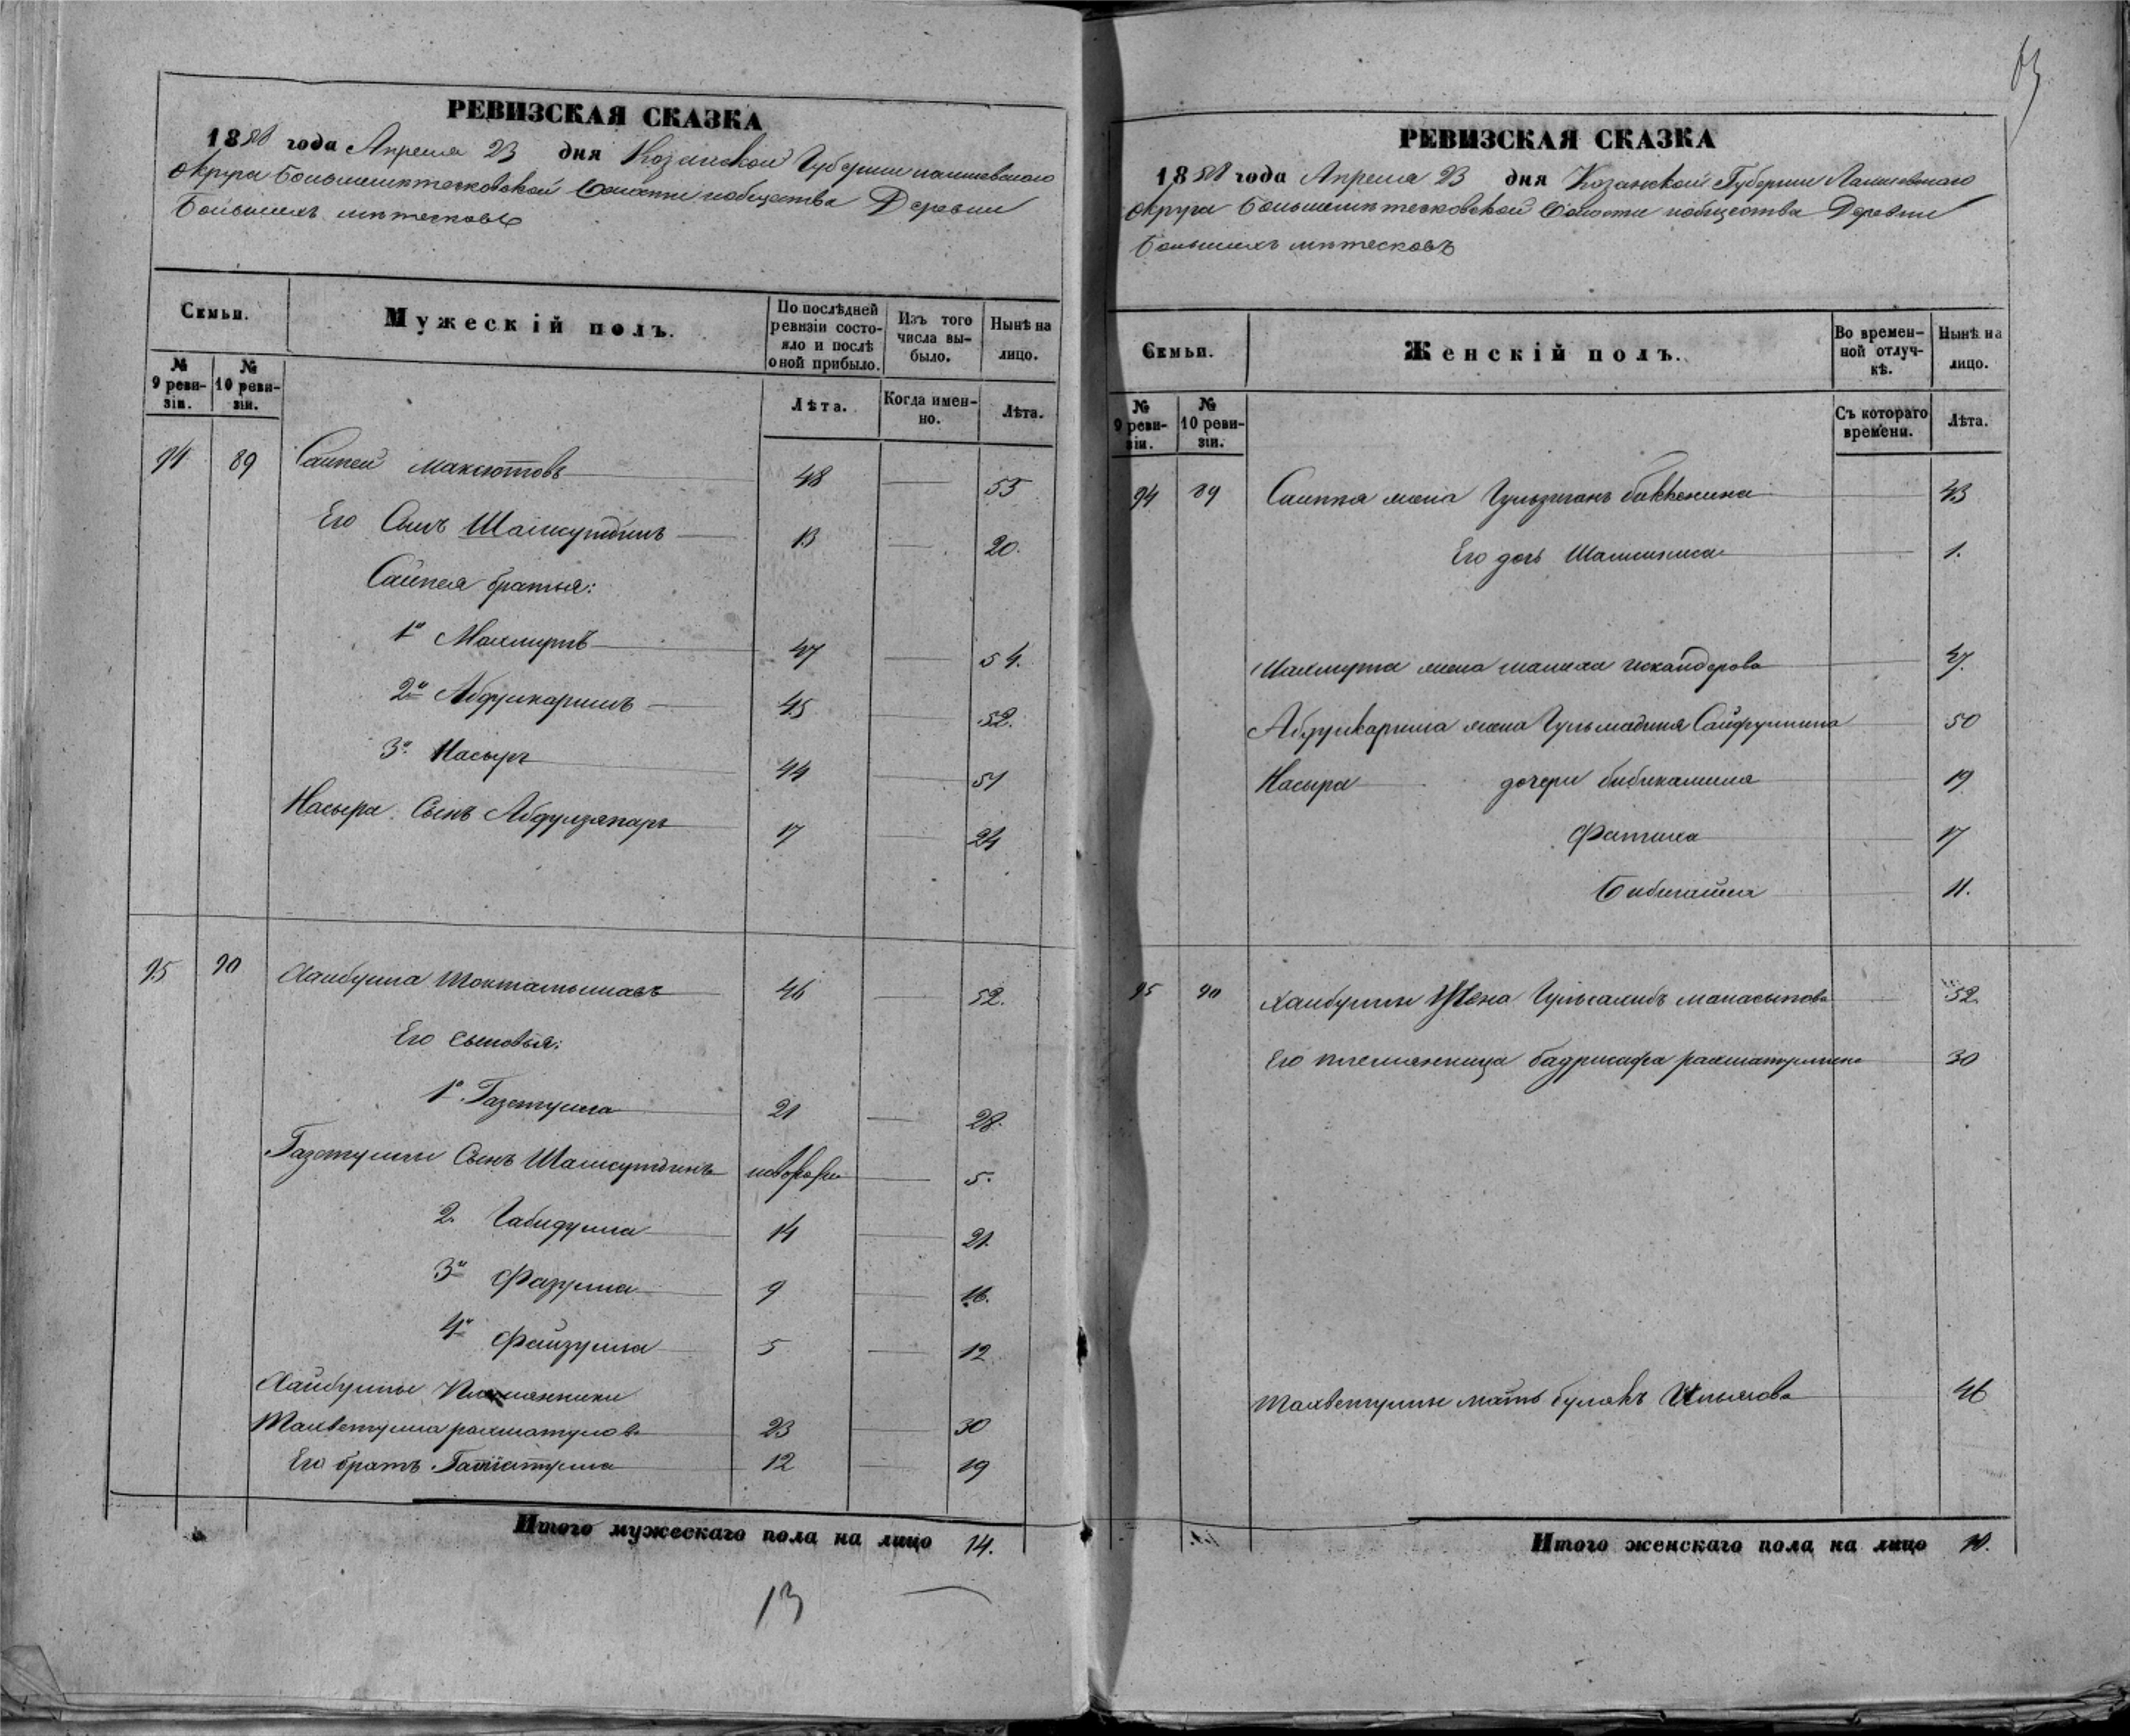 63
РЕВИЗСКАЯ СКАЗКА
1858 года Апреля 23 дня Козанской Губернии Лаишевского
округа Большемѣтесковской Волости и общества Деревни
Большихъ мѣтесковъ
Семьи.
Мужескій полъ.
По послѣдней ревизіи состояло и послѣ оной прибыло.
Изъ того числа выбыло.
Нынѣ на лицо.
№ 9 ревизіи.
№ 10 ревизіи.
Лѣта.
Когда именно.
Лѣта.
94 89 Саипей Максютовъ 48 55
Его Сынъ Шамсутдинъ 13 20.
Саипея братья:
1й Махмутъ 47 54.
2й Абдулкаримъ 45 52.
3й Насыръ 44 51
Насыра Сынъ Абдулзяпаръ 17 24
95 90 Хаибулла Токтамышовъ 46 52.
Его сыновья:
1й Газетулла 21 28.
Газетуллы Сынъ Шамсутдинъ 5.
2. Габидулла 14 21.
3й Фазулла 9 16.
4й Файзулла 5 12
Хайбуллы Племянники
Тахветулла рахматуловъ 23 30
Его братъ Гатиатулла 12 19
Итого мужескаго пола на лицо 14.
13
РЕВИЗСКАЯ СКАЗКА
1858 года Апреля 23 дня Козанской Губернии Лаишевскаго
округа Большемѣтесковской Волости и общества Деревни
Большихъ мѣтесковъ
Семьи.
Женскій полъ.
Во временной отлучкѣ.
Нынѣ на лицо.
№ 9 ревизіи.
№ 10 ревизіи.
Съ котораго времени.
Лѣта.
94 89 Саипея жена Гульзиганъ 43
Его дочь Шамсиниса 1.
Махмута жена малика искандерова 47.
Абдулкарима жена Гульмадина Сайфуллина 50
Насыра дочери бибикамила 19
Фатиха 17
Бибигайша 11.
95 90 Хаибуллы Жена Гульсахибъ манасыпова 52.
Его племянница бадрисафа рахматуллина 30
Тахветуллы мать булякъ Ильясова 46
Итого женскаго пола на лицо 10.